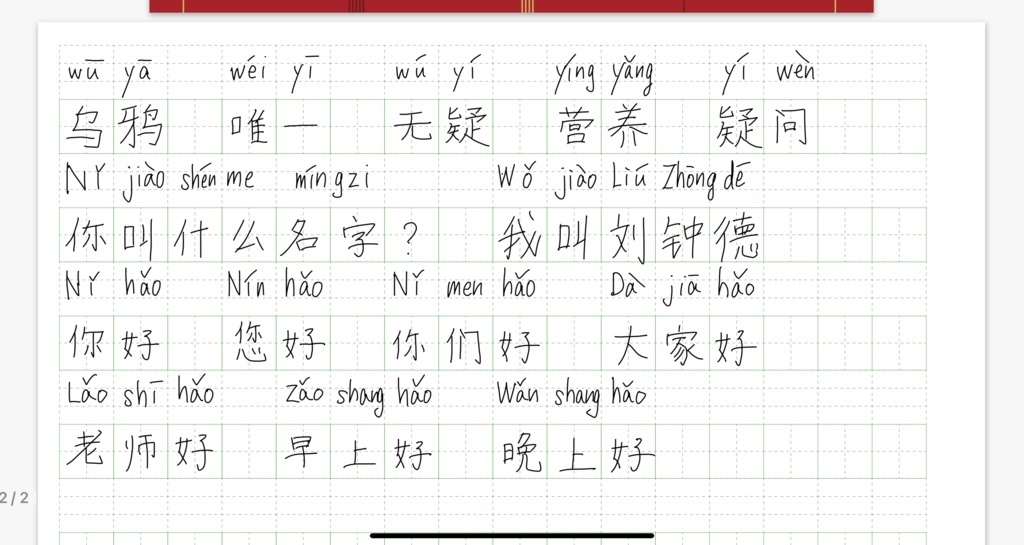 wū yā wéi yī wú yí yíng yǎng yí wèn
乌鸦 唯一 无疑 营养 疑问
Nǐ jiào shén me míng zi Wǒ jiào Liú Zhōng dé
你叫什么名字? 我叫刘钟德
Nǐ hǎo Nín hǎo Nǐ men hǎo Dà jiā hǎo
你好 您好 你们好 大家好
Lǎo shī hǎo Zǎo shang hǎo Wǎn shang hǎo
老师好 早上好 晚上好
2/2